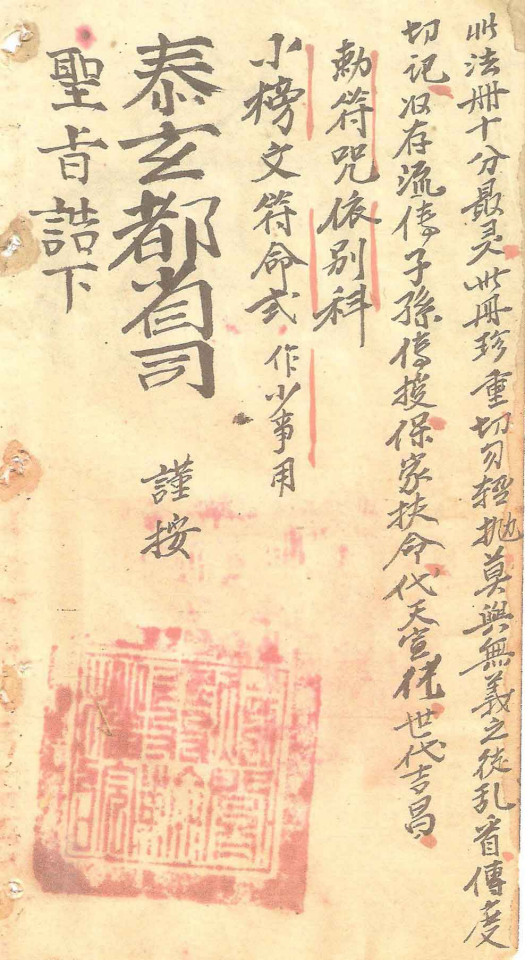 此法册十分最灵此册珍重切勿轻抛莫與無義之徒乱首傳度
切记收存流傳子孫傳授保家扶命代天宣化世代吉昌
勅符咒依別科
小榜文符命式作小事用
泰玄都省司 謹按
聖旨誥下